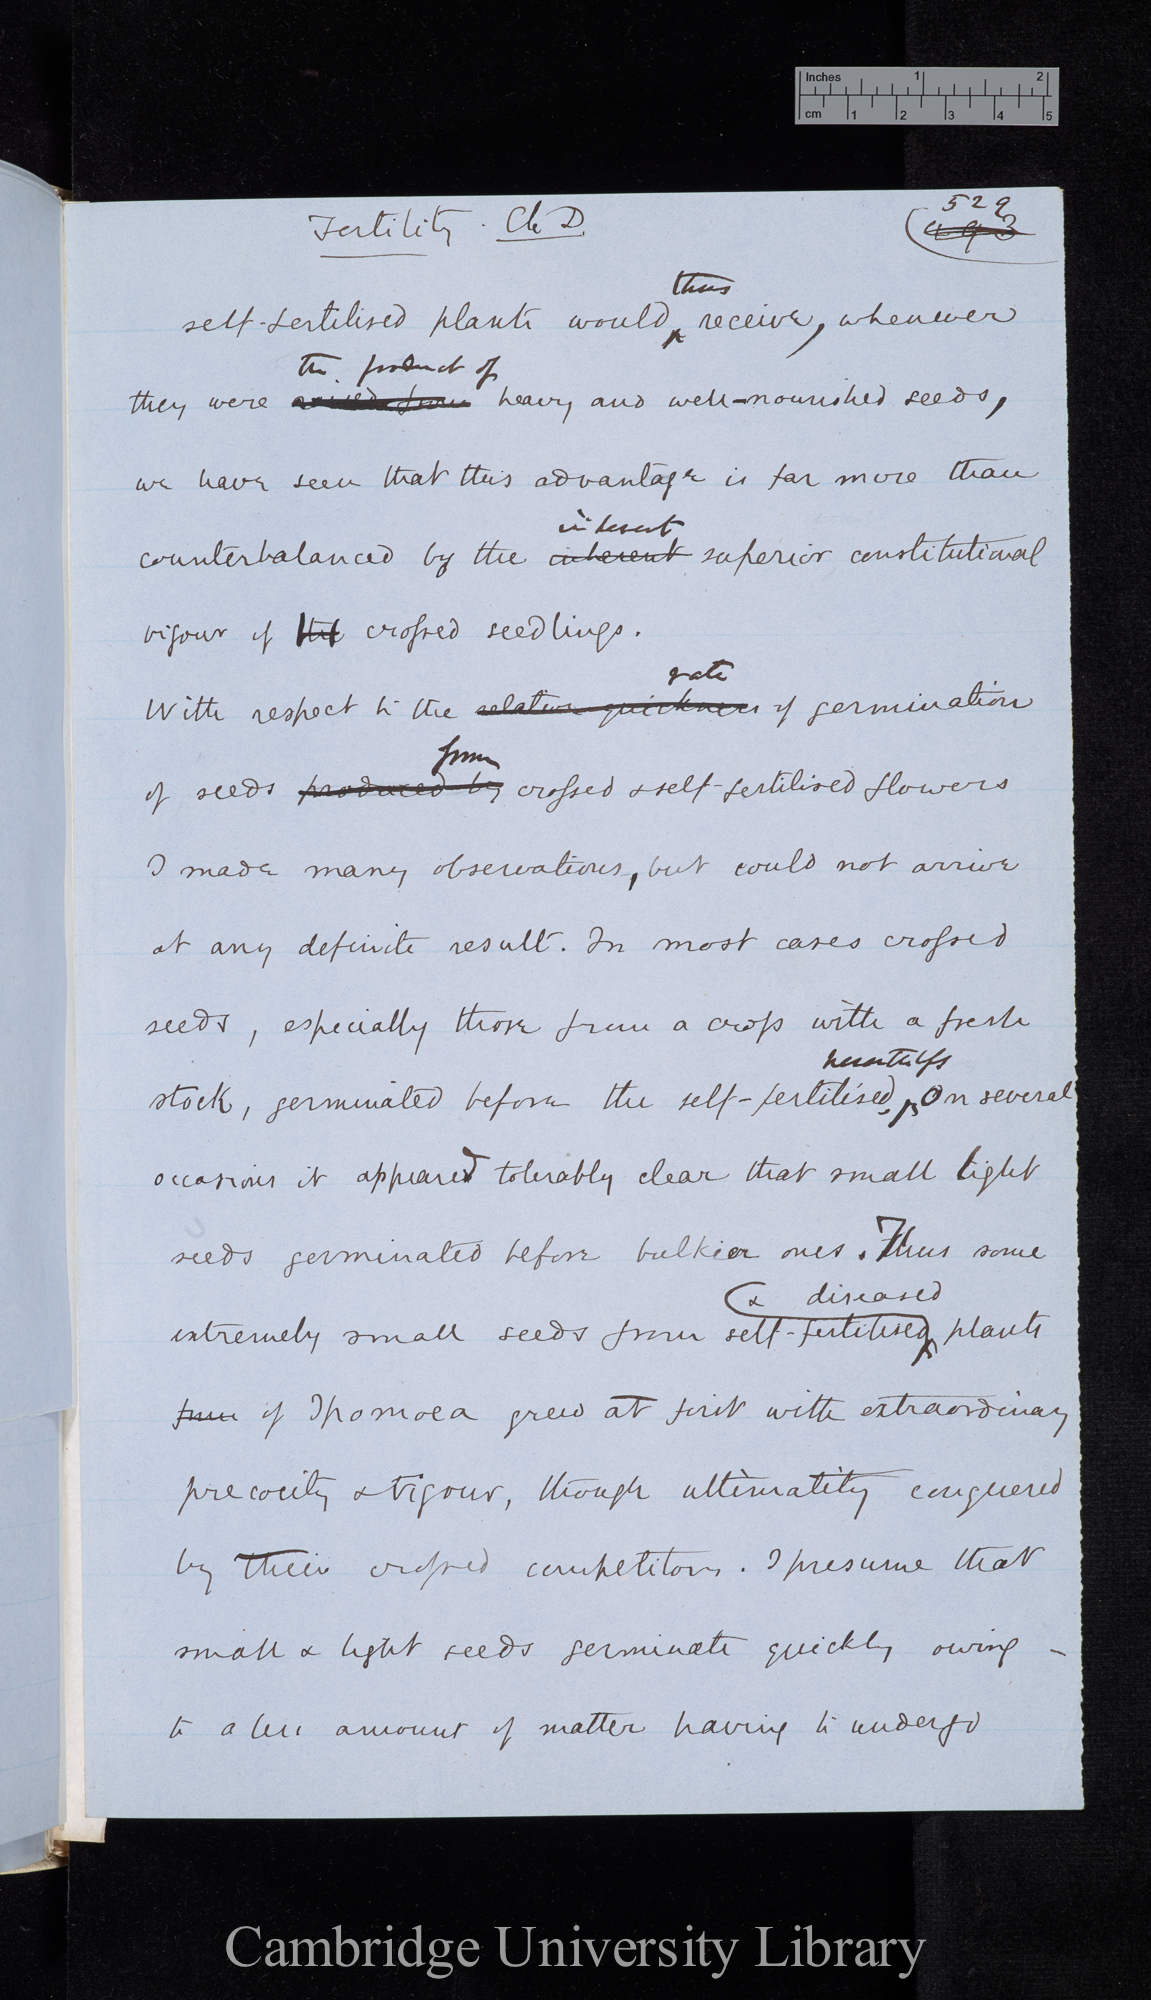 Inches 1 2
cm 1 2 3 4 5
Fertility. Ch D
529
493
thus
self-fertilised plants would receive, whenever
the product of
they were raised from heavy and well-nourished seeds,
we have seen that this advantage is far more than
inherent
counterbalanced by the inherent superior constitutional
vigour of the crossed seedlings.
rate
With respect to the relative quickness of germination
from
of seeds produced by crossed & self-fertilised flowers
I made many observations, but could not arrive
at any definite result. In most cases crossed
seeds, especially those from a cross with a fresh
stock, germinated before the self-fertilised, On several
occasions it appeared tolerably clear that small light
seeds germinated before bulkier ones. Thus some
& diseased
extremely small seeds from self-fertilised plants
from of Ipomoea grew at first with extraordinary
precocity & vigour, though ultimatity conquered
by their crossed competitors. I presume that
small & light seeds germinate quickly owing -
to a less amount of matter having to undergo
Cambridge University Library